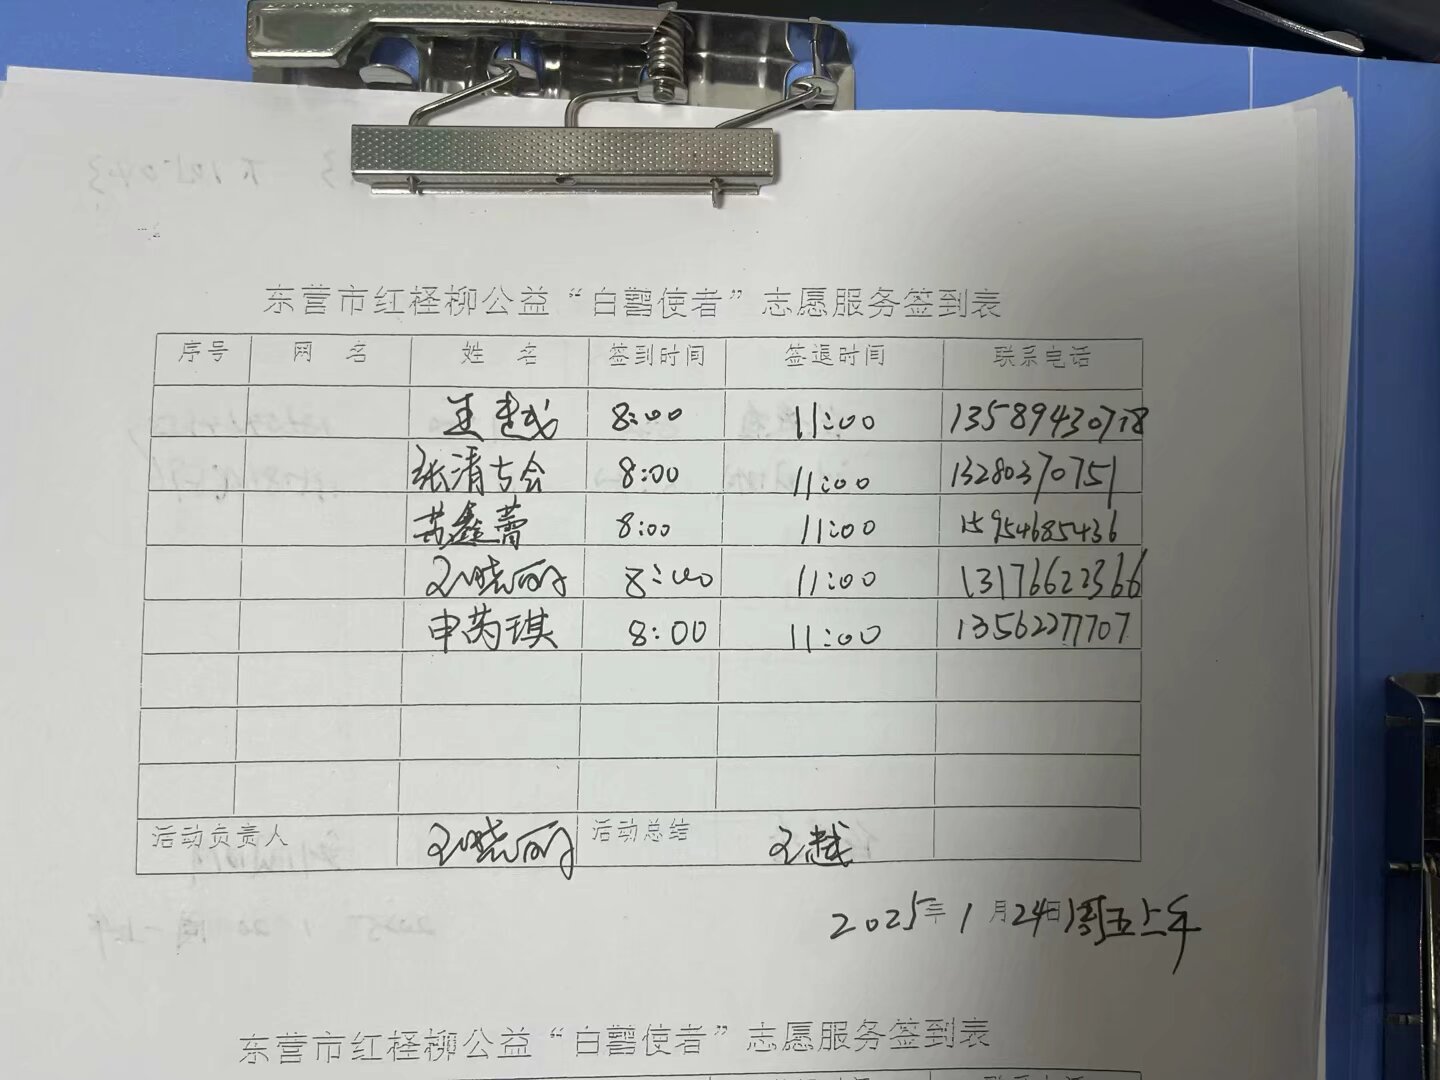 东营市红柽柳公益“白鹳使者”志愿服务签到表
序号 网 名 姓 名 签到时间 签退时间 联系电话
王越 8:00 11:00 13589430718
张清 8:00 11:00 13280370751
苏鑫蕾 8:00 11:00 15954685436
王晓丽 8:00 11:00 13176622366
申芮琪 8:00 11:00 13562277707
活动负责人 王晓丽 活动总结 王越
2025年1月24日周五上午
东营市红柽柳公益“白鹳使者”志愿服务签到表